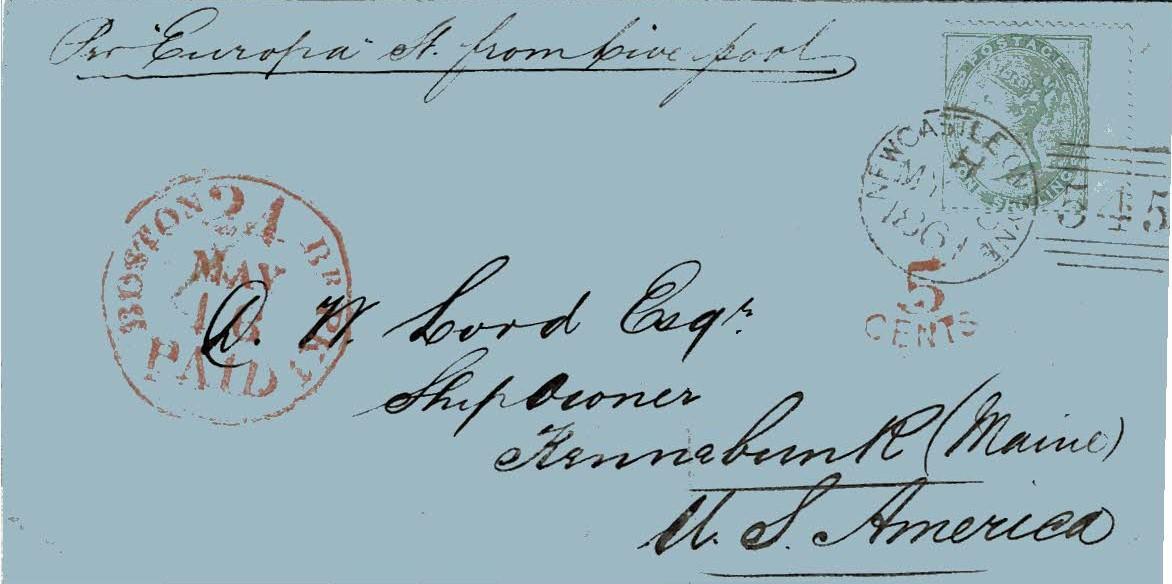 Per "Europa" St. from Liverpool
POSTAGE
ONE SHILLING
NEWCASTLE ON TYNE
MY
545
BOSTON BR. PKT
24
MAY
PAID
5
CENTS
W. Lord Esqr.
Shipowner
Kennebunk (Maine)
U. S. America